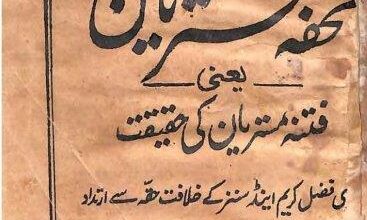 تحفہ مستریان
یعنی
فتنۂ مستریان کی حقیقت
ی فضل کریم اینڈ سنز کے خلافت حقہ سے ارتداد